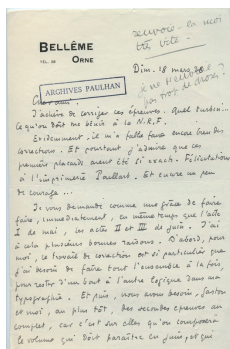 renvoie-la moi
très vite.
BELLÊME
ORNE
TÉL. 26
Dim. 18 mars
ARCHIVES PAULHAN
Cher ami.
J'achève de corriger ces épreuves. Quel
ce qu'on doit me bénir à la N.R.F. !
Evidemment, il m'a fallu faire encore bien des
corrections. Et pourtant j'admire que ces
premiers placards aient été si exacts. Félicitations
à l'imprimerie Paillart. Et encore un peu
de courage ...
Je vous demande comme une grâce de faire
faire, immédiatement, en même temps que l'acte
I de mai, les actes II et III de juin. J'ai
à cela plusieurs bonnes raisons. D'abord, pour
moi, le travail de correction est si particulier que
j'ai besoin de faire tout l'ensemble à la fois
pour rester d'un bout à l'autre logique dans ma
typographie. Et puis, nous avons besoin, Gaston
et moi, au plus tôt, des secondes épreuves au
complet, car c'est sur elles qu'on composera
le volume qui doit paraître en juin, et qui